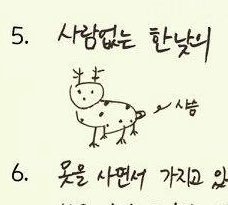 5. 사람없는 한낮의
사슴
6. 못을 사면서 가지고